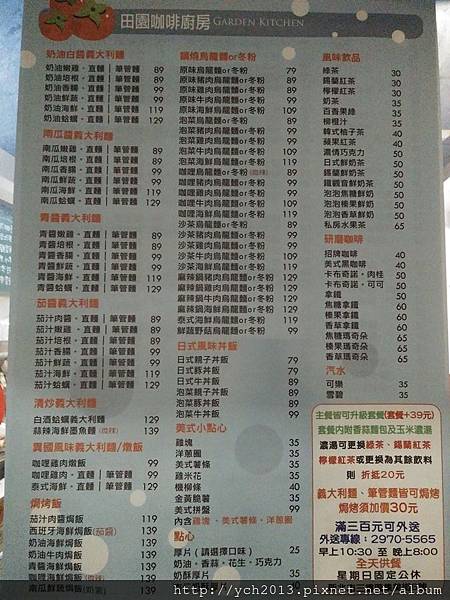 田園咖啡廚房 GARDEN KITCHEN
奶油白醬義大利麵
奶油嫩雞。直麵│筆管麵 89
奶油培根。直麵│筆管麵 89
奶油香腸。直麵│筆管麵 99
奶油鮮蔬。直麵│筆管麵 99
奶油海鮮。直麵│筆管麵 119
奶油蛤蠣。直麵│筆管麵 129
南瓜醬義大利麵
南瓜嫩雞。直麵│筆管麵 89
南瓜培根。直麵│筆管麵 89
南瓜香腸。直麵│筆管麵 99
南瓜鮮蔬。直麵│筆管麵 99
南瓜海鮮。直麵│筆管麵 119
南瓜蛤蠣。直麵│筆管麵 129
青醬義大利麵
青醬嫩雞。直麵│筆管麵 89
青醬培根。直麵│筆管麵 89
青醬香腸。直麵│筆管麵 99
青醬鮮蔬。直麵│筆管麵 99
青醬海鮮。直麵│筆管麵 119
青醬蛤蠣。直麵│筆管麵 129
茄醬義大利麵
茄汁肉醬。直麵│筆管麵 89
茄汁嫩雞。直麵│筆管麵 89
茄汁培根。直麵│筆管麵 89
茄汁香腸。直麵│筆管麵 99
茄汁鮮蔬。直麵│筆管麵 99
茄汁海鮮。直麵│筆管麵 119
茄汁蛤蠣。直麵│筆管麵 129
清炒義大利麵
白酒蛤蠣義大利麵 129
蒜辣海鮮墨魚麵(微辣) 139
異國風味義大利麵/燉飯
咖哩雞肉燉飯 99
咖哩雞肉。直麵│筆管麵 99
泰式海鮮。直麵│筆管麵 129
焗烤飯
茄汁肉醬焗飯 139
西班牙海鮮焗飯(茄醬) 139
奶油海鮮焗飯 139
奶油牛肉焗飯 139
奶油雞肉焗飯 139
咖哩雞肉焗飯 139
咖哩海鮮焗飯(微辣) 139
南瓜鮮蔬焗飯(奶素) 139
鍋燒烏龍麵or冬粉
原味烏龍麵or冬粉 79
原味豬肉烏龍麵or冬粉 99
原味雞肉烏龍麵or冬粉 99
原味牛肉烏龍麵or冬粉 99
原味海鮮烏龍麵or冬粉 109
泡菜烏龍麵or冬粉 89
泡菜豬肉烏龍麵or冬粉 99
泡菜雞肉烏龍麵or冬粉 99
泡菜牛肉烏龍麵or冬粉 109
泡菜海鮮烏龍麵or冬粉 119
咖哩烏龍麵or冬粉(微辣) 89
咖哩豬肉烏龍麵or冬粉 99
咖哩雞肉烏龍麵or冬粉 99
咖哩牛肉烏龍麵or冬粉 109
咖哩海鮮烏龍麵or冬粉 119
沙茶烏龍麵or冬粉 89
沙茶豬肉烏龍麵or冬粉 99
沙茶雞肉烏龍麵or冬粉 99
沙茶牛肉烏龍麵or冬粉 109
沙茶海鮮烏龍麵or冬粉 119
麻辣鍋豬肉烏龍麵or冬粉 129
麻辣鍋雞肉烏龍麵or冬粉 129
麻辣鍋牛肉烏龍麵or冬粉 129
麻辣鍋海鮮烏龍麵or冬粉 129
泰式海鮮烏龍麵or冬粉 119
鮮蔬野菇烏龍麵or冬粉 99
日式風味丼飯
日式親子丼飯 79
日式豚丼飯 79
日式牛丼飯 89
泡菜豚丼飯 89
泡菜牛丼飯 99
美式小點心
雞塊 35
洋蔥圈 35
美式薯條 35
雞米花 35
機柳條 40
金黃脆薯 35
美式拼盤 99
內含雞塊、美式薯條、洋蔥圈
點心
厚片(請選擇口味) 25
奶油。香蒜。花生。巧克力
奶酥厚片 35
風味飲品
綠茶 30
錫蘭紅茶 30
檸檬紅茶 30
奶茶 35
百香果綠 35
柳橙汁 35
韓式柚子茶 40
蘋果紅茶 40
濃情巧克力 50
日式鮮奶茶 50
錫蘭鮮奶茶 50
鐵觀音鮮奶茶 50
泡泡焦糖鮮奶 50
泡泡榛果鮮奶 50
泡泡香草鮮奶 50
私房水果茶 65
研磨咖啡
招牌咖啡 40
美式黑咖啡 40
卡布奇諾。肉桂 50
卡布奇諾。可可 50
拿鐵 50
焦糖拿鐵 60
榛果拿鐵 60
香草拿鐵 60
焦糖瑪奇朵 65
榛果瑪奇朵 65
香草瑪奇朵 65
汽水
可樂 35
雪碧 35
主餐皆可升級套餐(套餐+39元)
套餐內附香蒜麵包及玉米濃湯
濃湯可更換綠茶、錫蘭紅茶
檸檬紅茶或更換為其餘飲料
則 折抵20元
義大利麵、筆管麵皆可焗烤
焗烤須加價30元
滿三百元可外送
外送專線:2970-5565
早上10:30 至 晚上8:00
全天供餐
星期日固定公休
http://ych2013.pixnet.net/album